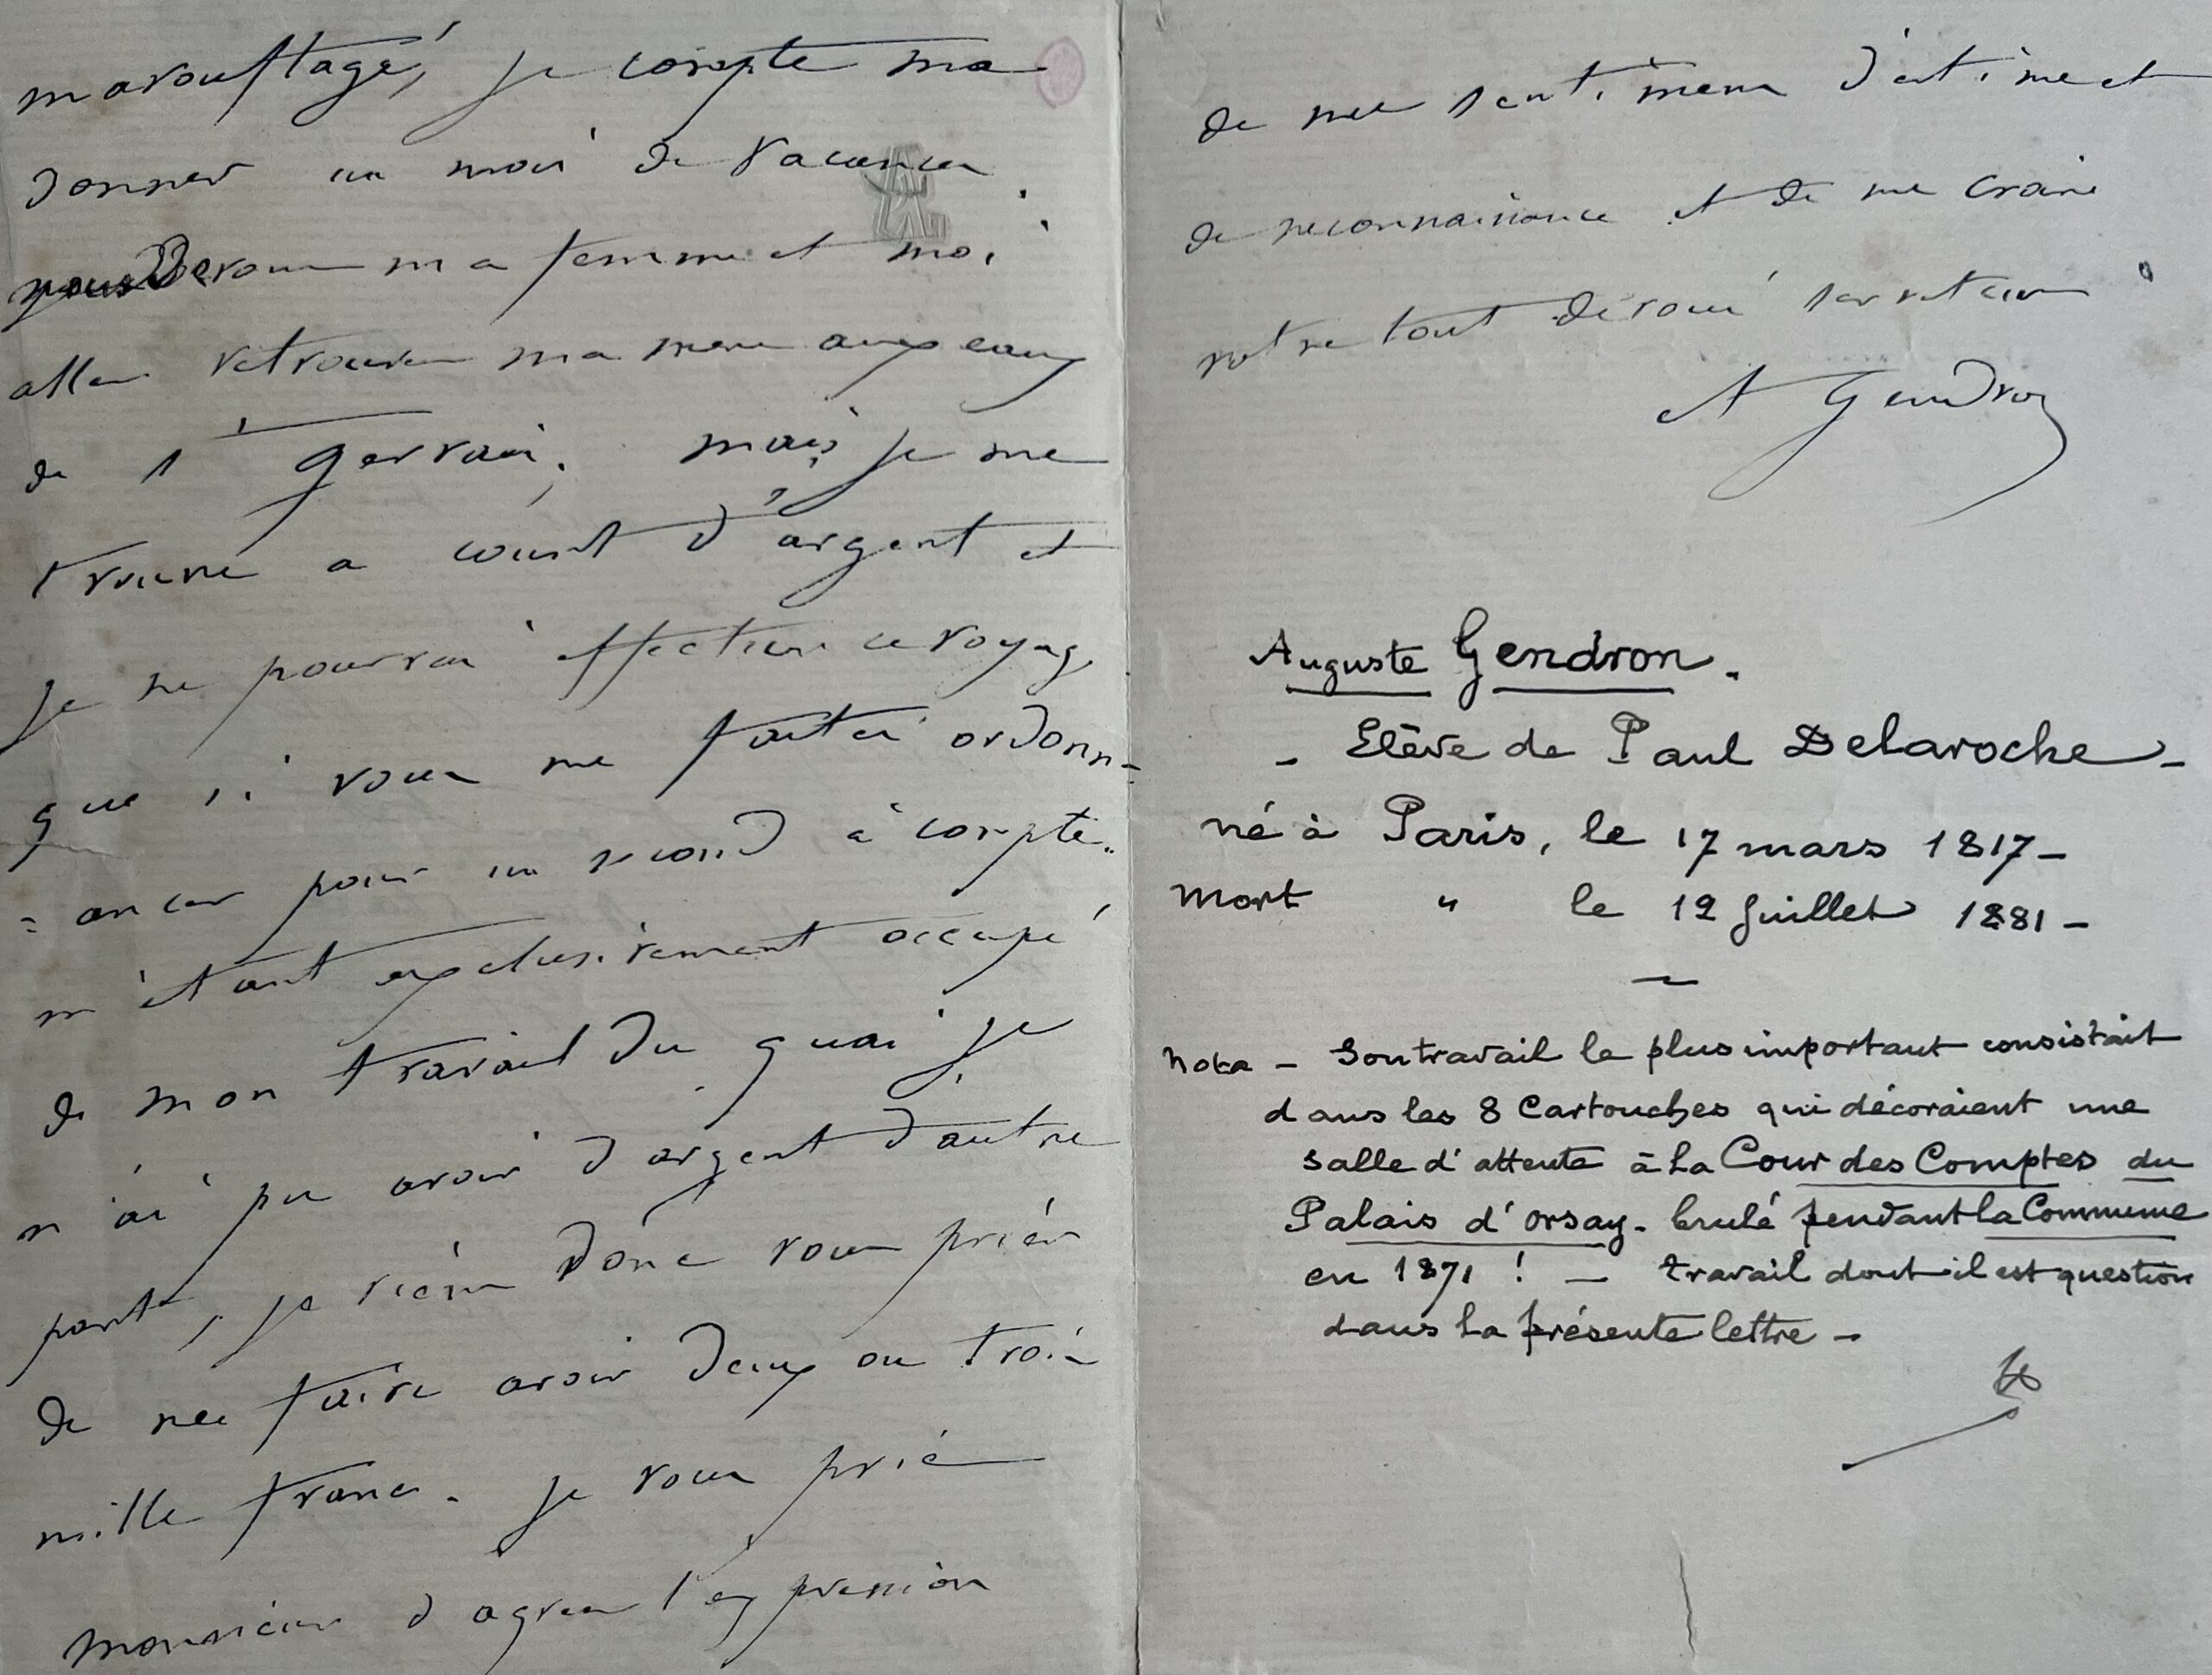 marouflage, je compte me
donner un mois de vacances
nous Devons ma femme et moi
aller retrouver ma mere aux eaux
de St Gervais. mais je me
trouve a court d'argent et
je ne pourrai effectuer ce voyage
que si vous me faites ordonn-
=ancer pour un second à compte.
m'étant exclusivement occupé
de mon travail du quai je
n'ai pu avoir d'argent d'autre
part, je viens donc vous prier
de me faire avoir deux ou trois
mille francs. je vous prie
monsieur d'agreer l'expression
de mes sentimens d'estime et
de reconnaissance et de me croire
votre tout dévoué serviteur
A Gendron
Auguste Gendron.
- Elève de Paul Delaroche -
né à Paris, le 17 mars 1817 -
Mort " le 12 Juillet 1881 -
Nota - Son travail le plus important consistait
dans les 8 Cartouches qui décoraient une
salle d'attente à la Cour des Comptes du
Palais d'orsay - brulé pendant la Commune
en 1871 ! - travail dont il est question
dans la présente lettre -